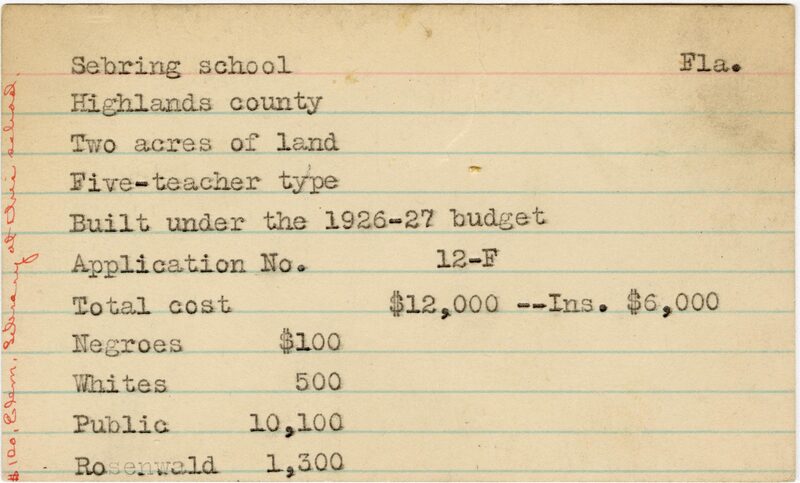 Sebring school Fla.
Highlands county
Two acres of land
Five-teacher type
Built under the 1926-27 budget
Application No. 12-F
Total cost $12,000 --Ins. $6,000
Negroes $100
Whites 500
Public 10,100
Rosenwald 1,300
$120, Elem. Library at this school.